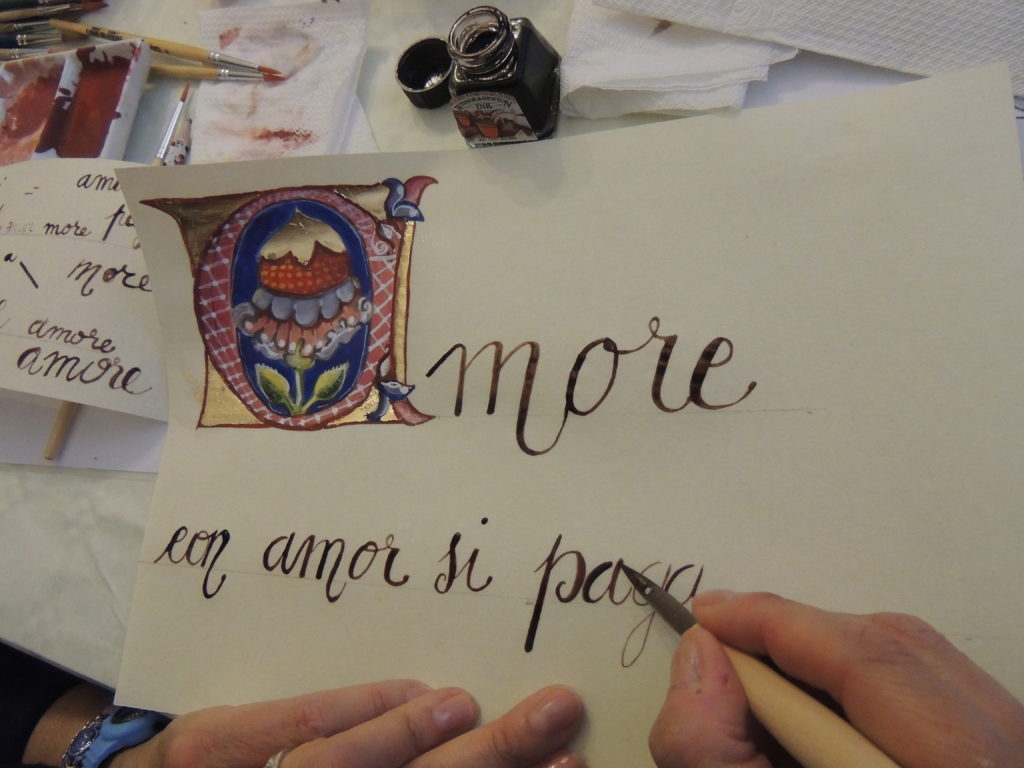 Amore
con amor si paga
ame
more
more
amore
amore
WINSOR & NEWTON
INK